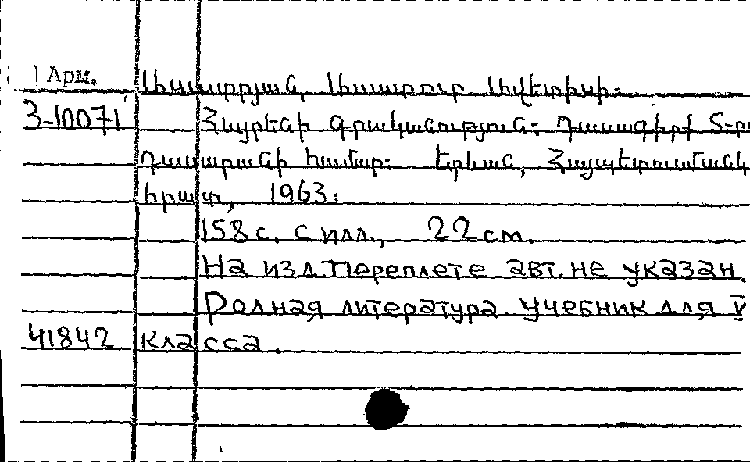 Арм.
З-10071 Հայրենի գրականություն։ Դասագիրք 5-րդ
դասարանի համար։ Երևան, Հայպետուսմանկ
հրատ, 1963։
158 с. с илл., 22 см.
На изд. переплете авт. не указан.
Родная литература. Учебник для V
41842 класса.